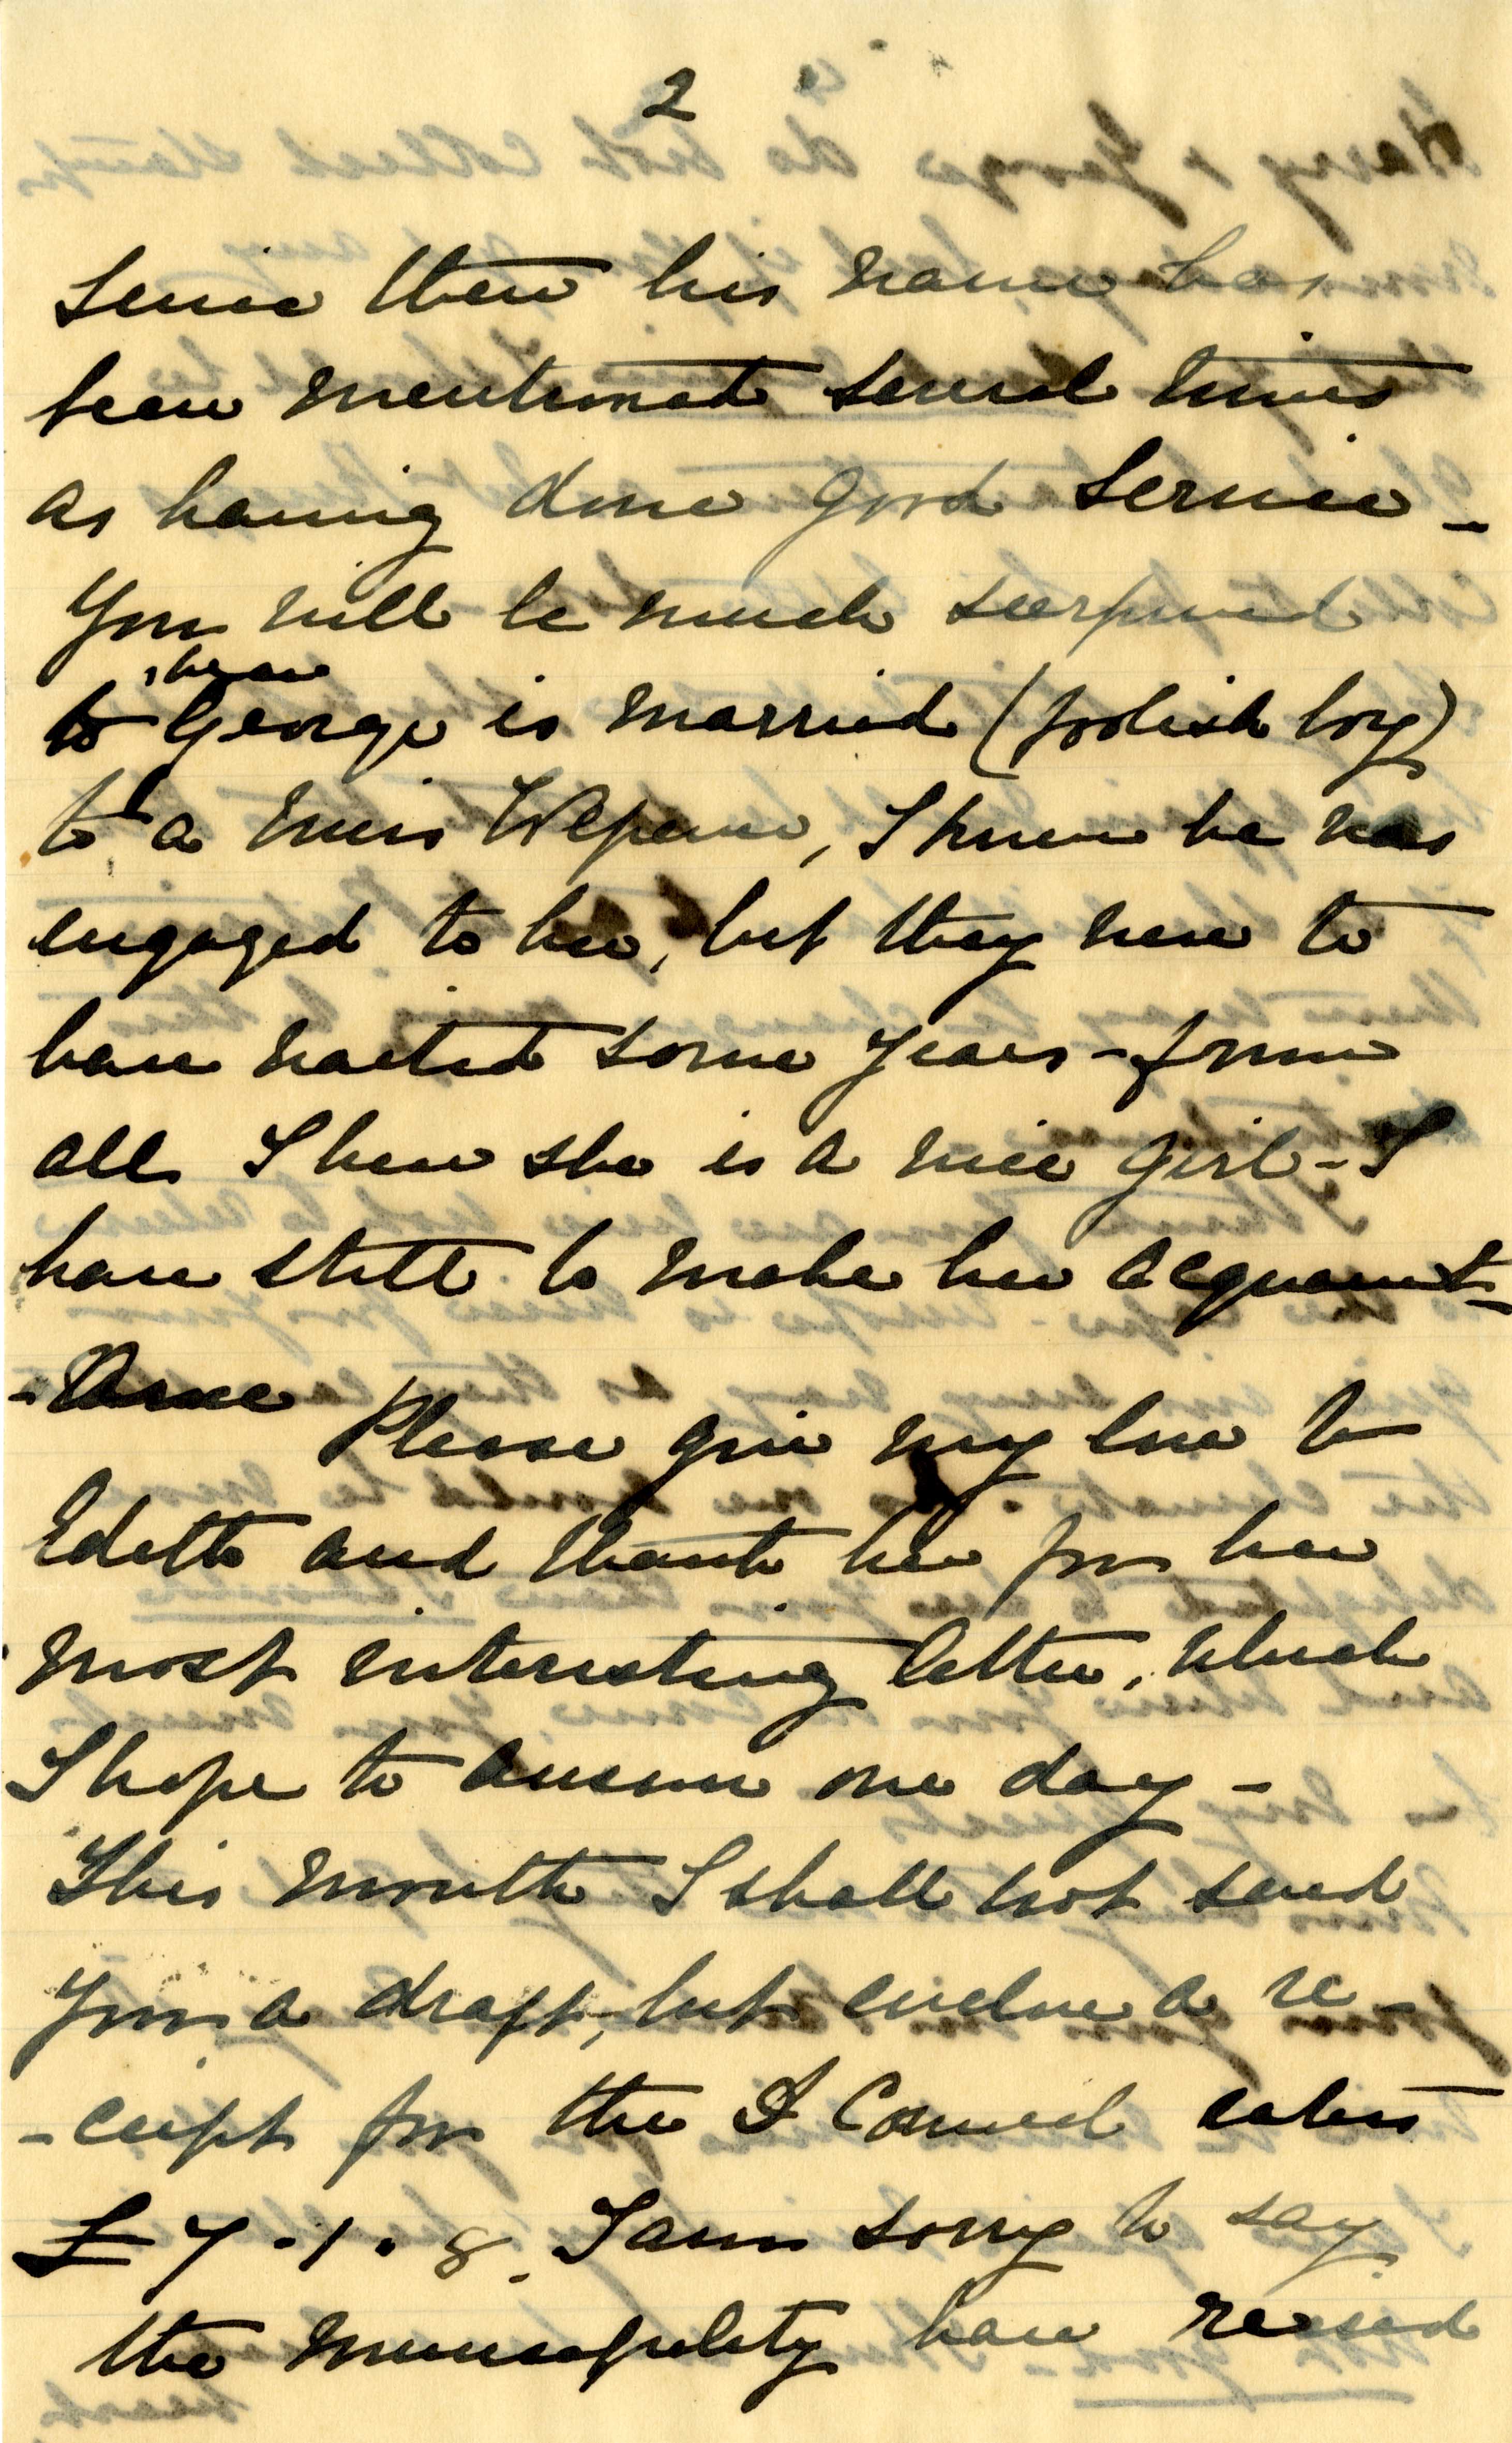 2
Since then his name has
been mentioned several times
as having done good service -
You will be much surprised
to hear George is married (foolish boy)
to a Miss, I knew he was
engaged to her, but they were to
have waited some years - from
all I hear she is a nice girl - I
have still to make her acquaint-
-ance Please give my love to
Edith and thank her for her
most interesting letter, which
I hope to answer one day -
This month I shall not send
you a draft, but enclose a re-
-ceipt for the D Council rates
£7.1.8. I am sorry to say
the municipality have raised